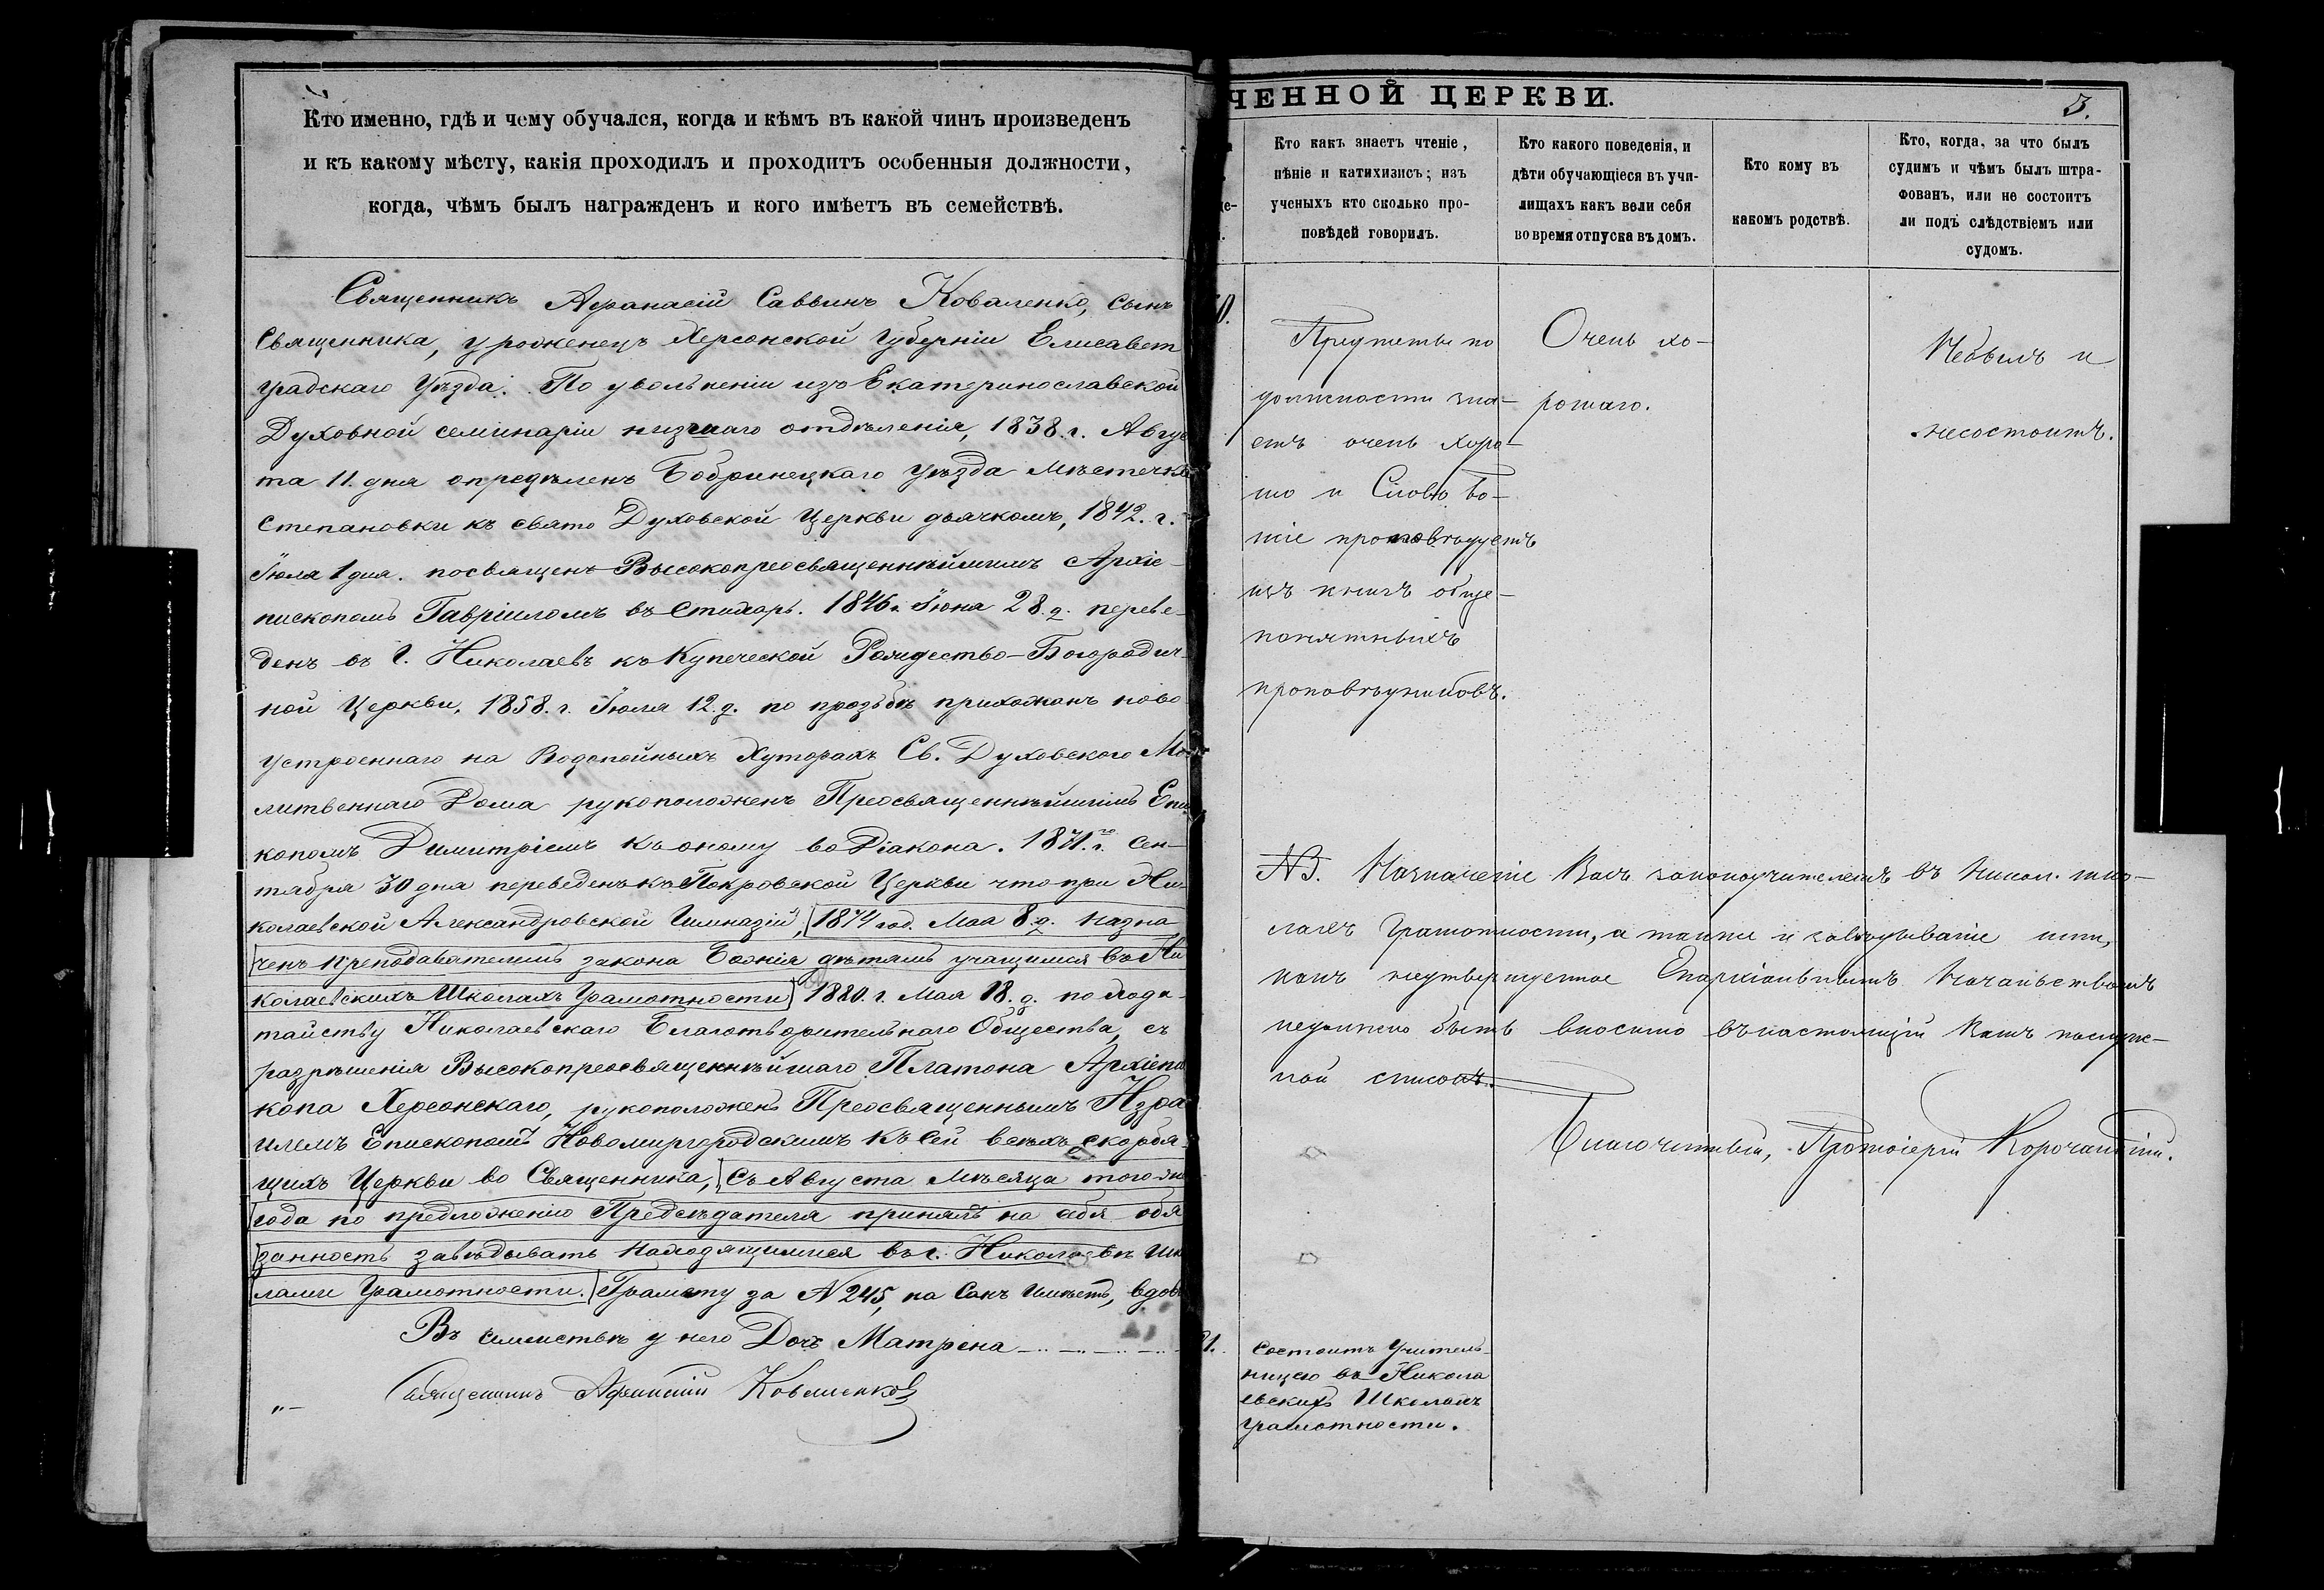 Кто именно, гдѣ и чему обучался, когда и кѣмъ въ какой чинъ произведенъ
и къ какому мѣсту, какія проходилъ и проходитъ особенныя должности,
когда, чѣмъ былъ награжденъ и кого имѣетъ въ семействѣ.
Священникъ Афанасій Саввинъ Коваленко, сынъ
Священника, уроженецъ Херсонской Губерніи Елисавет
градскаго Уѣзда. По увольненіи изъ Екатеринославской
Духовной семинаріи низшаго отдѣленія, 1838. г. Авгус
та 11. дня опредѣленъ Бобринецкаго уѣзда Мѣстечка
Степановки къ свято Духовской Церкви дьячкомъ, 1842. г.
Іюля 1 дня. посвященъ Высокопреосвященнѣйшимъ Архіе-
пископомъ Гавріиломъ въ Стихарь. 1846 г. Іюня 28. д. переве-
денъ въ Г. Николаевъ къ Купеческой Рождество-Богородич-
ной Церкви, 1858. г. Іюля 12. д. по прозьбѣ прихожанъ ново
устроеннаго на Водопойныхъ Хуторахъ Св. Духовскаго Мо-
литвеннаго Дома рукоположенъ Преосвященнѣйшимъ Епис
копомъ Димитріемъ къ оному во Діакона. 1871. г. Сен-
тября 30 дня переведенъ къ Покровской Церкви что при Ни-
колаевской Александровской Гимназіи, 1874 год. Мая 8. д. назна-
ченъ преподавателемъ закона Божія дѣтямъ учащимся въ Ни
колаевскихъ Школахъ Грамотности 1880. г. Мая 18. д. по хода-
тайству Николаевскаго Благотворительнаго Общества, съ
разрѣшенія Высокопреосвященнѣйшаго Платона Архіепи
копа Херсонскаго, рукоположенъ Преосвященнымъ Изра
илемъ Епископомъ Новомиргородскимъ къ сей всѣхъ скорбя-
щихъ Церкви во Священника, Съ Августа Мѣсяца того же
года по предложенію Предсѣдателя принялъ на себя обя
занность завѣдывать находящимися въ г. Николаевѣ Шк
лами Грамотности. Грамоту за N 245, на Санъ Имѣетъ, вдовъ
Въ семействѣ у него Дочь Матрона
Священникъ Афанасій Коваленков
ЧЕННОЙ ЦЕРКВИ.
3.
Кто какъ знаетъ чтеніе,
пѣніе и катихизисъ; изъ
ученыхъ кто сколько про-
повѣдей говорилъ.
Кто какого поведенія, и
дѣти обучающіеся въ учи-
лищахъ какъ вели себя
во время отпуска въ домъ.
Кто кому въ
какомъ родствѣ.
Кто, когда, за что былъ
судимъ и чѣмъ былъ штра-
фованъ, или не состоитъ
ли подъ слѣдствіемъ или
судомъ.
по
должности зна-
етъ очень хоро-
шо и Слово Бо-
жіе проповѣдуетъ
изъ книгъ обще-
понятныхъ
проповѣдниковъ.
Очень хо-
рошаго.
Небылъ и
несостоитъ.
NB. Назначеніе Васъ законоучителемъ въ Никол. шко-
лахъ Грамотности, а также и завѣдываніе ими,
какъ неутвержденное Епархіальнымъ Начальствомъ
недолжно быть вносимо въ настоящій Вашъ послуж-
ной списокъ.
Благочинный, Протоіерей Корочанскій.
Состоитъ Учитель-
ницею въ Никола
евскихъ Школахъ
Грамотности.